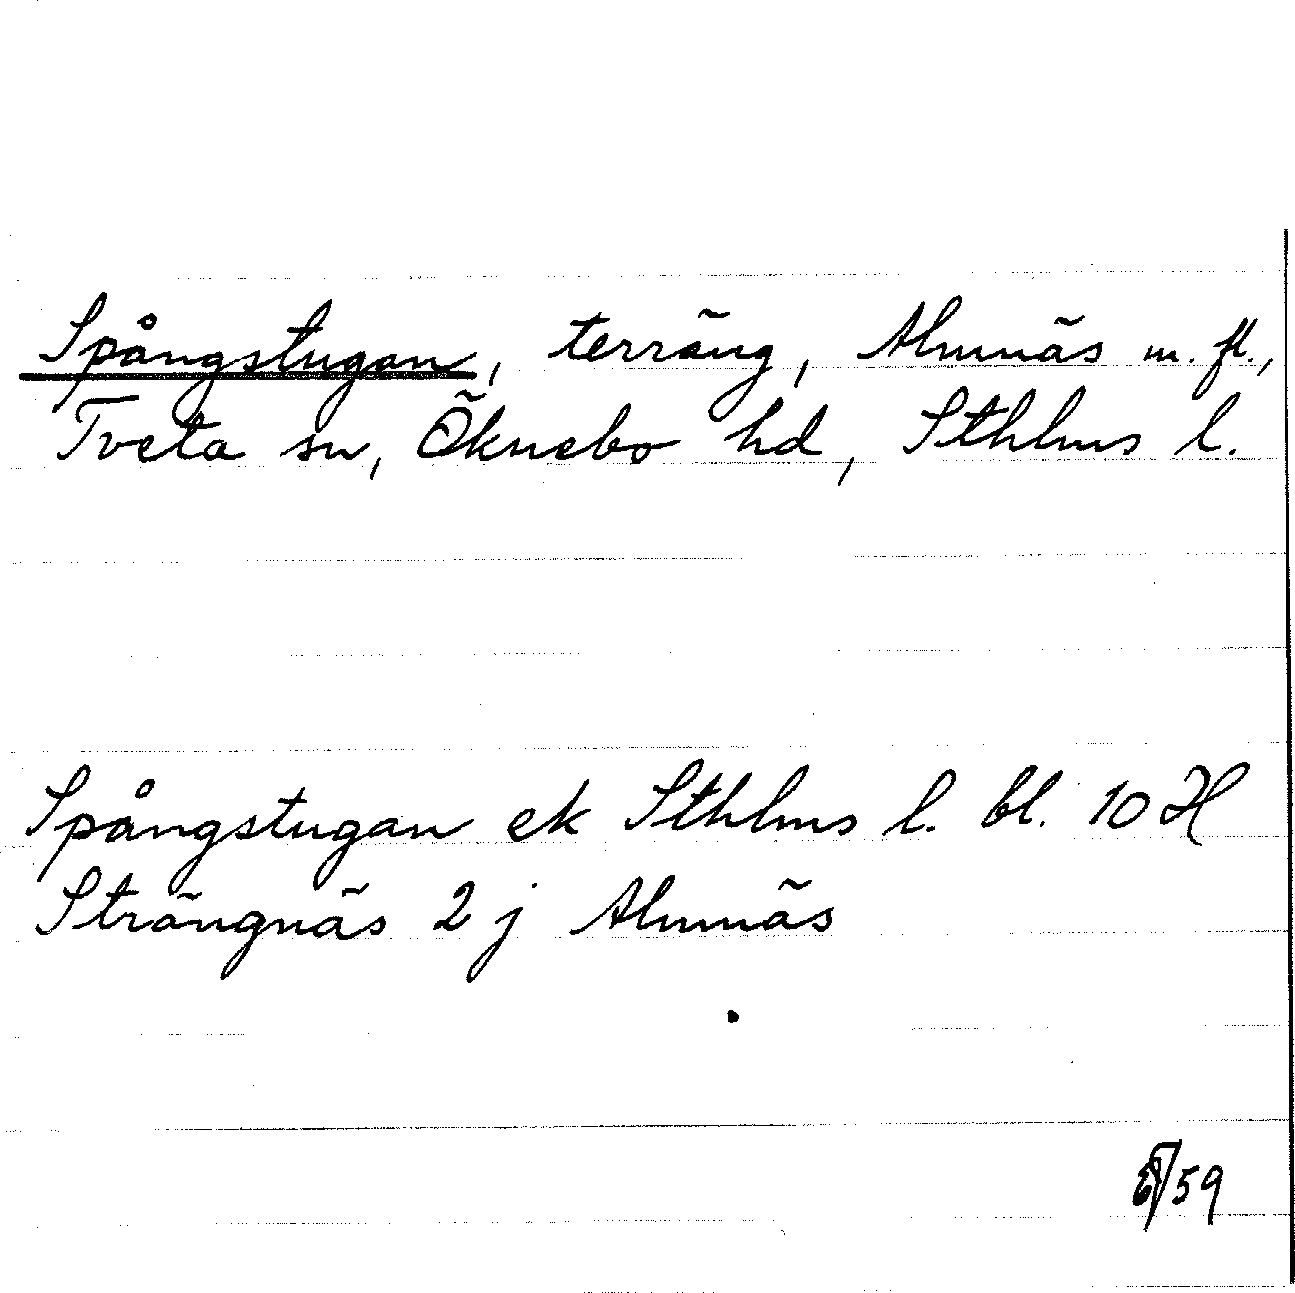 Spångstugan, terräng, Almnäs m. fl.,
Tveta sn, Öknebo hd, Sthlms l.
Spångstugan ek Sthlms l. bl. 10 H
Strängnäs 2 j Almnäs
59